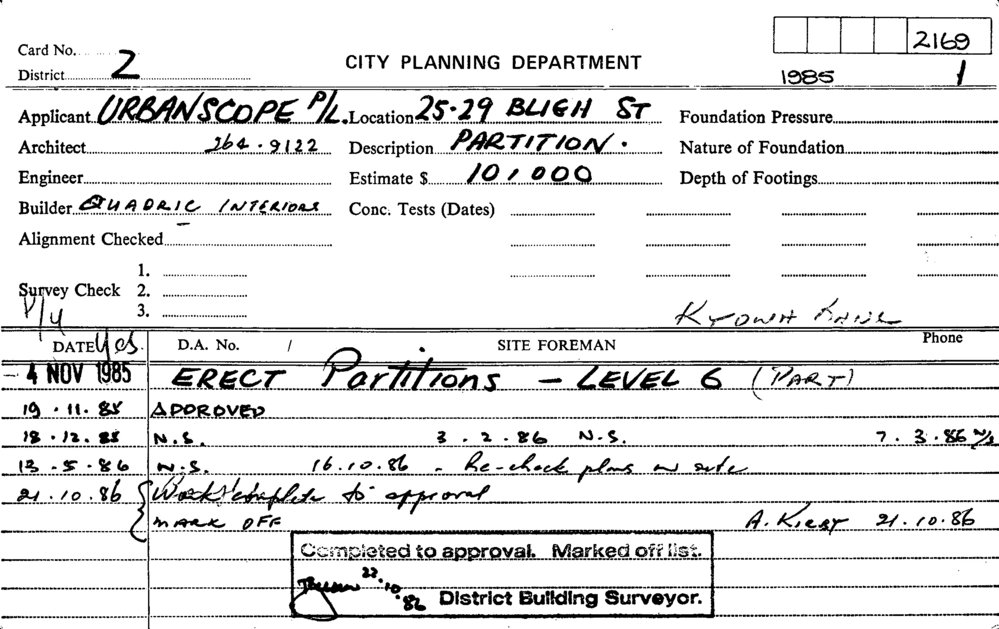 2169
Card No.
District 2
CITY PLANNING DEPARTMENT
1985 1
Applicant URBANSCOPE P/L. Location 25-29 BLIGH ST Foundation Pressure
Architect 264.9122 Description PARTITION. Nature of Foundation
Engineer Estimate $ 10,000 Depth of Footings
Builder QUADRIC INTERIORS Conc. Tests (Dates)
Alignment Checked
1.
Survey Check 2.
3.
KYOWA
DATE Yes. D.A. No. / SITE FOREMAN Phone
- 4 NOV 1985 ERECT Partitions - LEVEL 6 (PART)
19.11.85 APPROVED
18.12.85 N.S. 3.2.86 N.S. 7.3.86 N/S
13.5.86 N.S. 16.10.86 - Re-check plans on site
21.10.86 Work complete to approval
MARK OFF A. Kirby 21.10.86
Completed to approval. Marked off list.
22.10.86 District Building Surveyor.